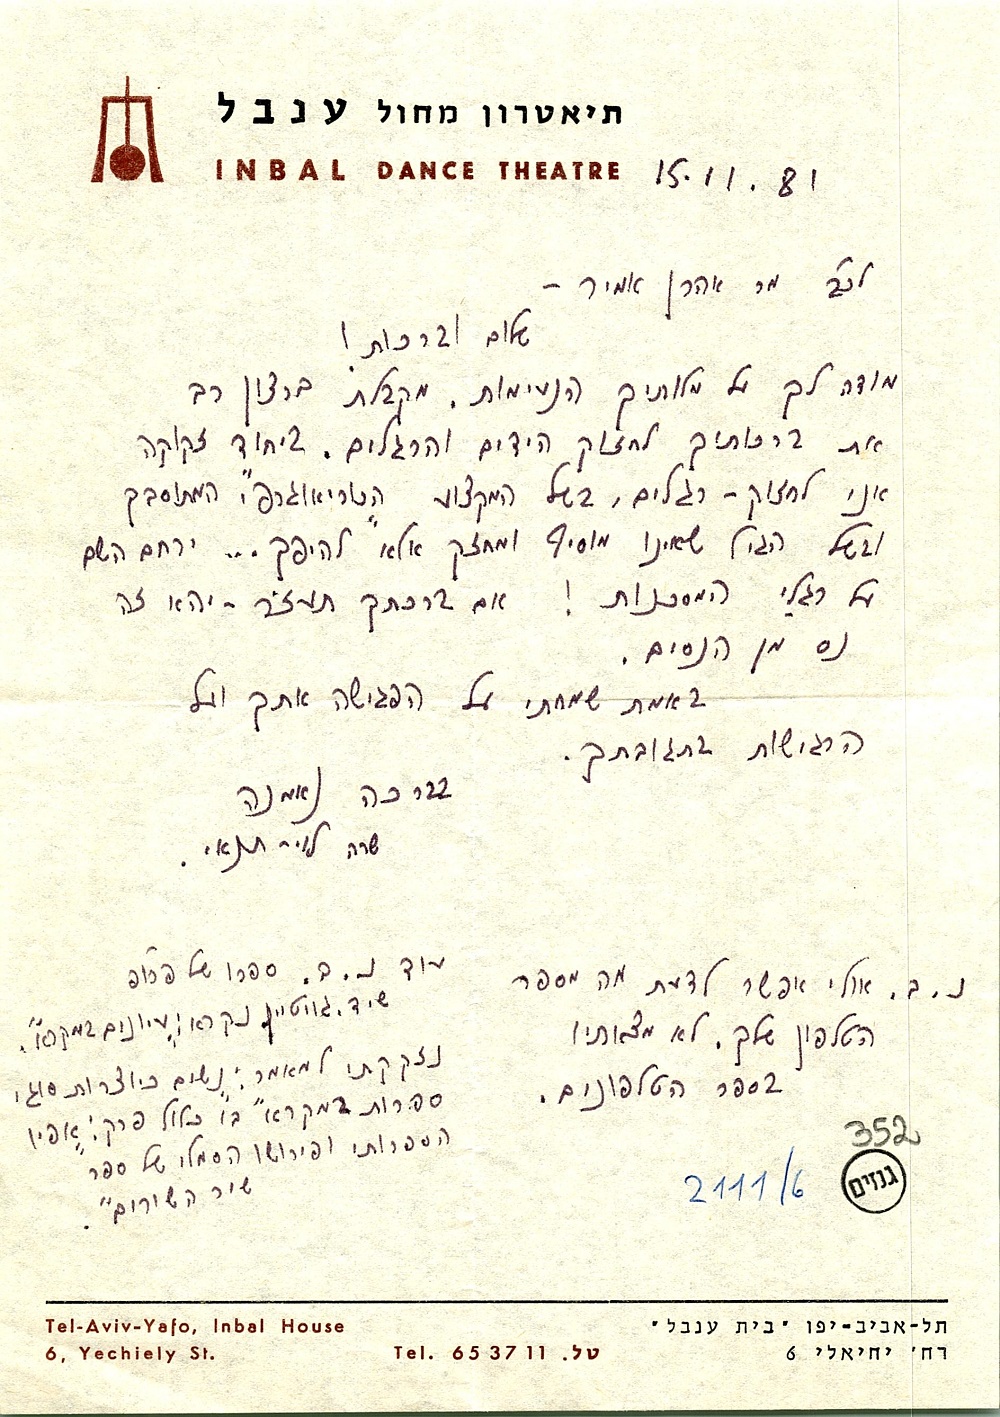 תיאטרון מחול ענבל
INBAL DANCE THEATRE 15.11.81
לכב' מר אהרן אמיר –
שלום וברכות!
מודה לך על מלותיך הנעימות. מקבלת ברצון רב
את ברכותיך לחזוק הידים והרגלים. ביחוד זקוקה
אני לחזוק-רגלים, בשל המקצוע הכוריאוגרפי המתוסבך
ובשל הגיל שאינו מוסיף ומחזק אלא "להיפך"... ירחם השם
על רגלי המסכנות! אם ברכתך תעזר - יהא זה
נס מן הנסים.
באמת שמחתי על הפגישה אתך ועל
הרגישות בתגובתך.
בברכה נאמנה
שרה לוי-תנאי.
נ.ב. אולי אפשר לדעת מה מספר
הטלפון שלך. לא מצאותיו
בספר הטלפונים.
עוד נ.ב. ספרו של פרופ'
ש.ד. גוייטיין נקרא: "עיונים במקרא".
נזקקתי למאמר: "נשים כיוצרות סוגי
ספרות במקרא" בו כלול פרק: "אפיו
הספרותי ופירושו הסמלי של ספר
שיר השירים".
352
גנזים
2111/6
Tel-Aviv-Yafo, Inbal House
6, Yechiely St.
Tel. 653711 טל.
תל-אביב-יפו "בית ענבל"
רח' יחיאלי 6